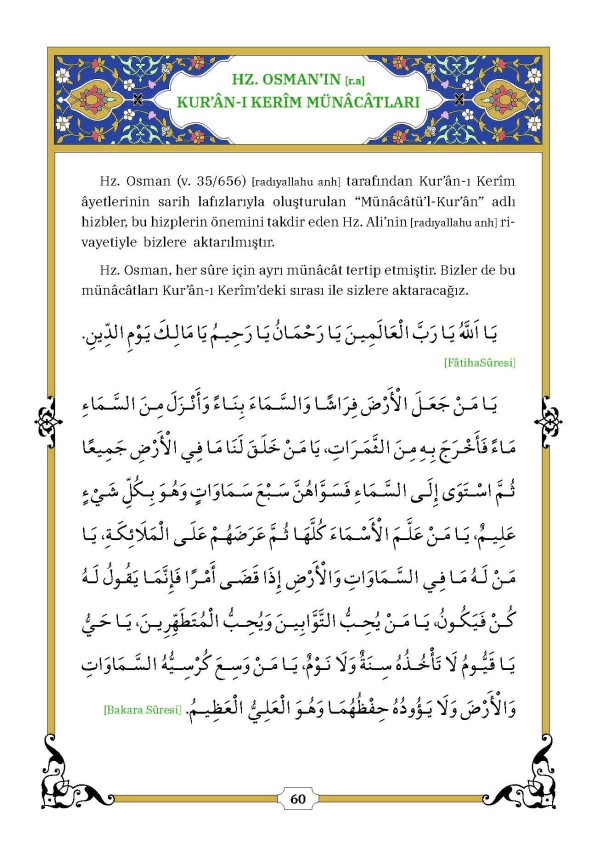 HZ. OSMAN’IN [r.a]
KUR’ÂN-I KERÎM MÜNÂCÂTLARI
Hz. Osman (v. 35/656) [radıyallahu anh] tarafından Kur’ân-ı Kerîm
âyetlerinin sarih lafızlarıyla oluşturulan “Münâcâtü’l-Kur’ân” adlı
hizbler, bu hizplerin önemini takdir eden Hz. Ali’nin [radıyallahu anh] ri-
vayetiyle bizlere aktarılmıştır.
Hz. Osman, her sûre için ayrı münâcât tertip etmiştir. Bizler de bu
münâcâtları Kur’ân-ı Kerîm’deki sırası ile sizlere aktaracağız.
يَا اَللّٰهُ يَا رَبَّ الْعَالَمِينَ يَا رَحْمَانُ يَا رَحِيمُ يَا مَالِكَ يَوْمِ الدِّينِ.
[FâtihaSûresi]
يَا مَنْ جَعَلَ الْأَرْضَ فِرَاشًا وَالسَّمَاءَ بِنَاءً وَأَنْزَلَ مِنَ السَّمَاءِ
مَاءً فَأَخْرَجَ بِهِ مِنَ الثَّمَرَاتِ، يَا مَنْ خَلَقَ لَنَا مَا فِي الْأَرْضِ جَمِيعًا
ثُمَّ اسْتَوَى إِلَى السَّمَاءِ فَسَوَّاهُنَّ سَبْعَ سَمَاوَاتٍ وَهُوَ بِكُلِّ شَيْءٍ
عَلِيمٌ، يَا مَنْ عَلَّمَ الْأَسْمَاءَ كُلَّهَا ثُمَّ عَرَضَهُمْ عَلَى الْمَلَائِكَةِ، يَا
مَنْ لَهُ مَا فِي السَّمَاوَاتِ وَالْأَرْضِ إِذَا قَضَى أَمْرًا فَإِنَّمَا يَقُولُ لَهُ
كُنْ فَيَكُونُ، يَا مَنْ يُحِبُّ التَّوَّابِينَ وَيُحِبُّ الْمُتَطَهِّرِينَ، يَا حَيُّ
يَا قَيُّومُ لَا تَأْخُذُهُ سِنَةٌ وَلَا نَوْمٌ، يَا مَنْ وَسِعَ كُرْسِيُّهُ السَّمَاوَاتِ
وَالْأَرْضَ وَلَا يَؤُودُهُ حِفْظُهُمَا وَهُوَ الْعَلِيُّ الْعَظِيمُ. [Bakara Sûresi]
60